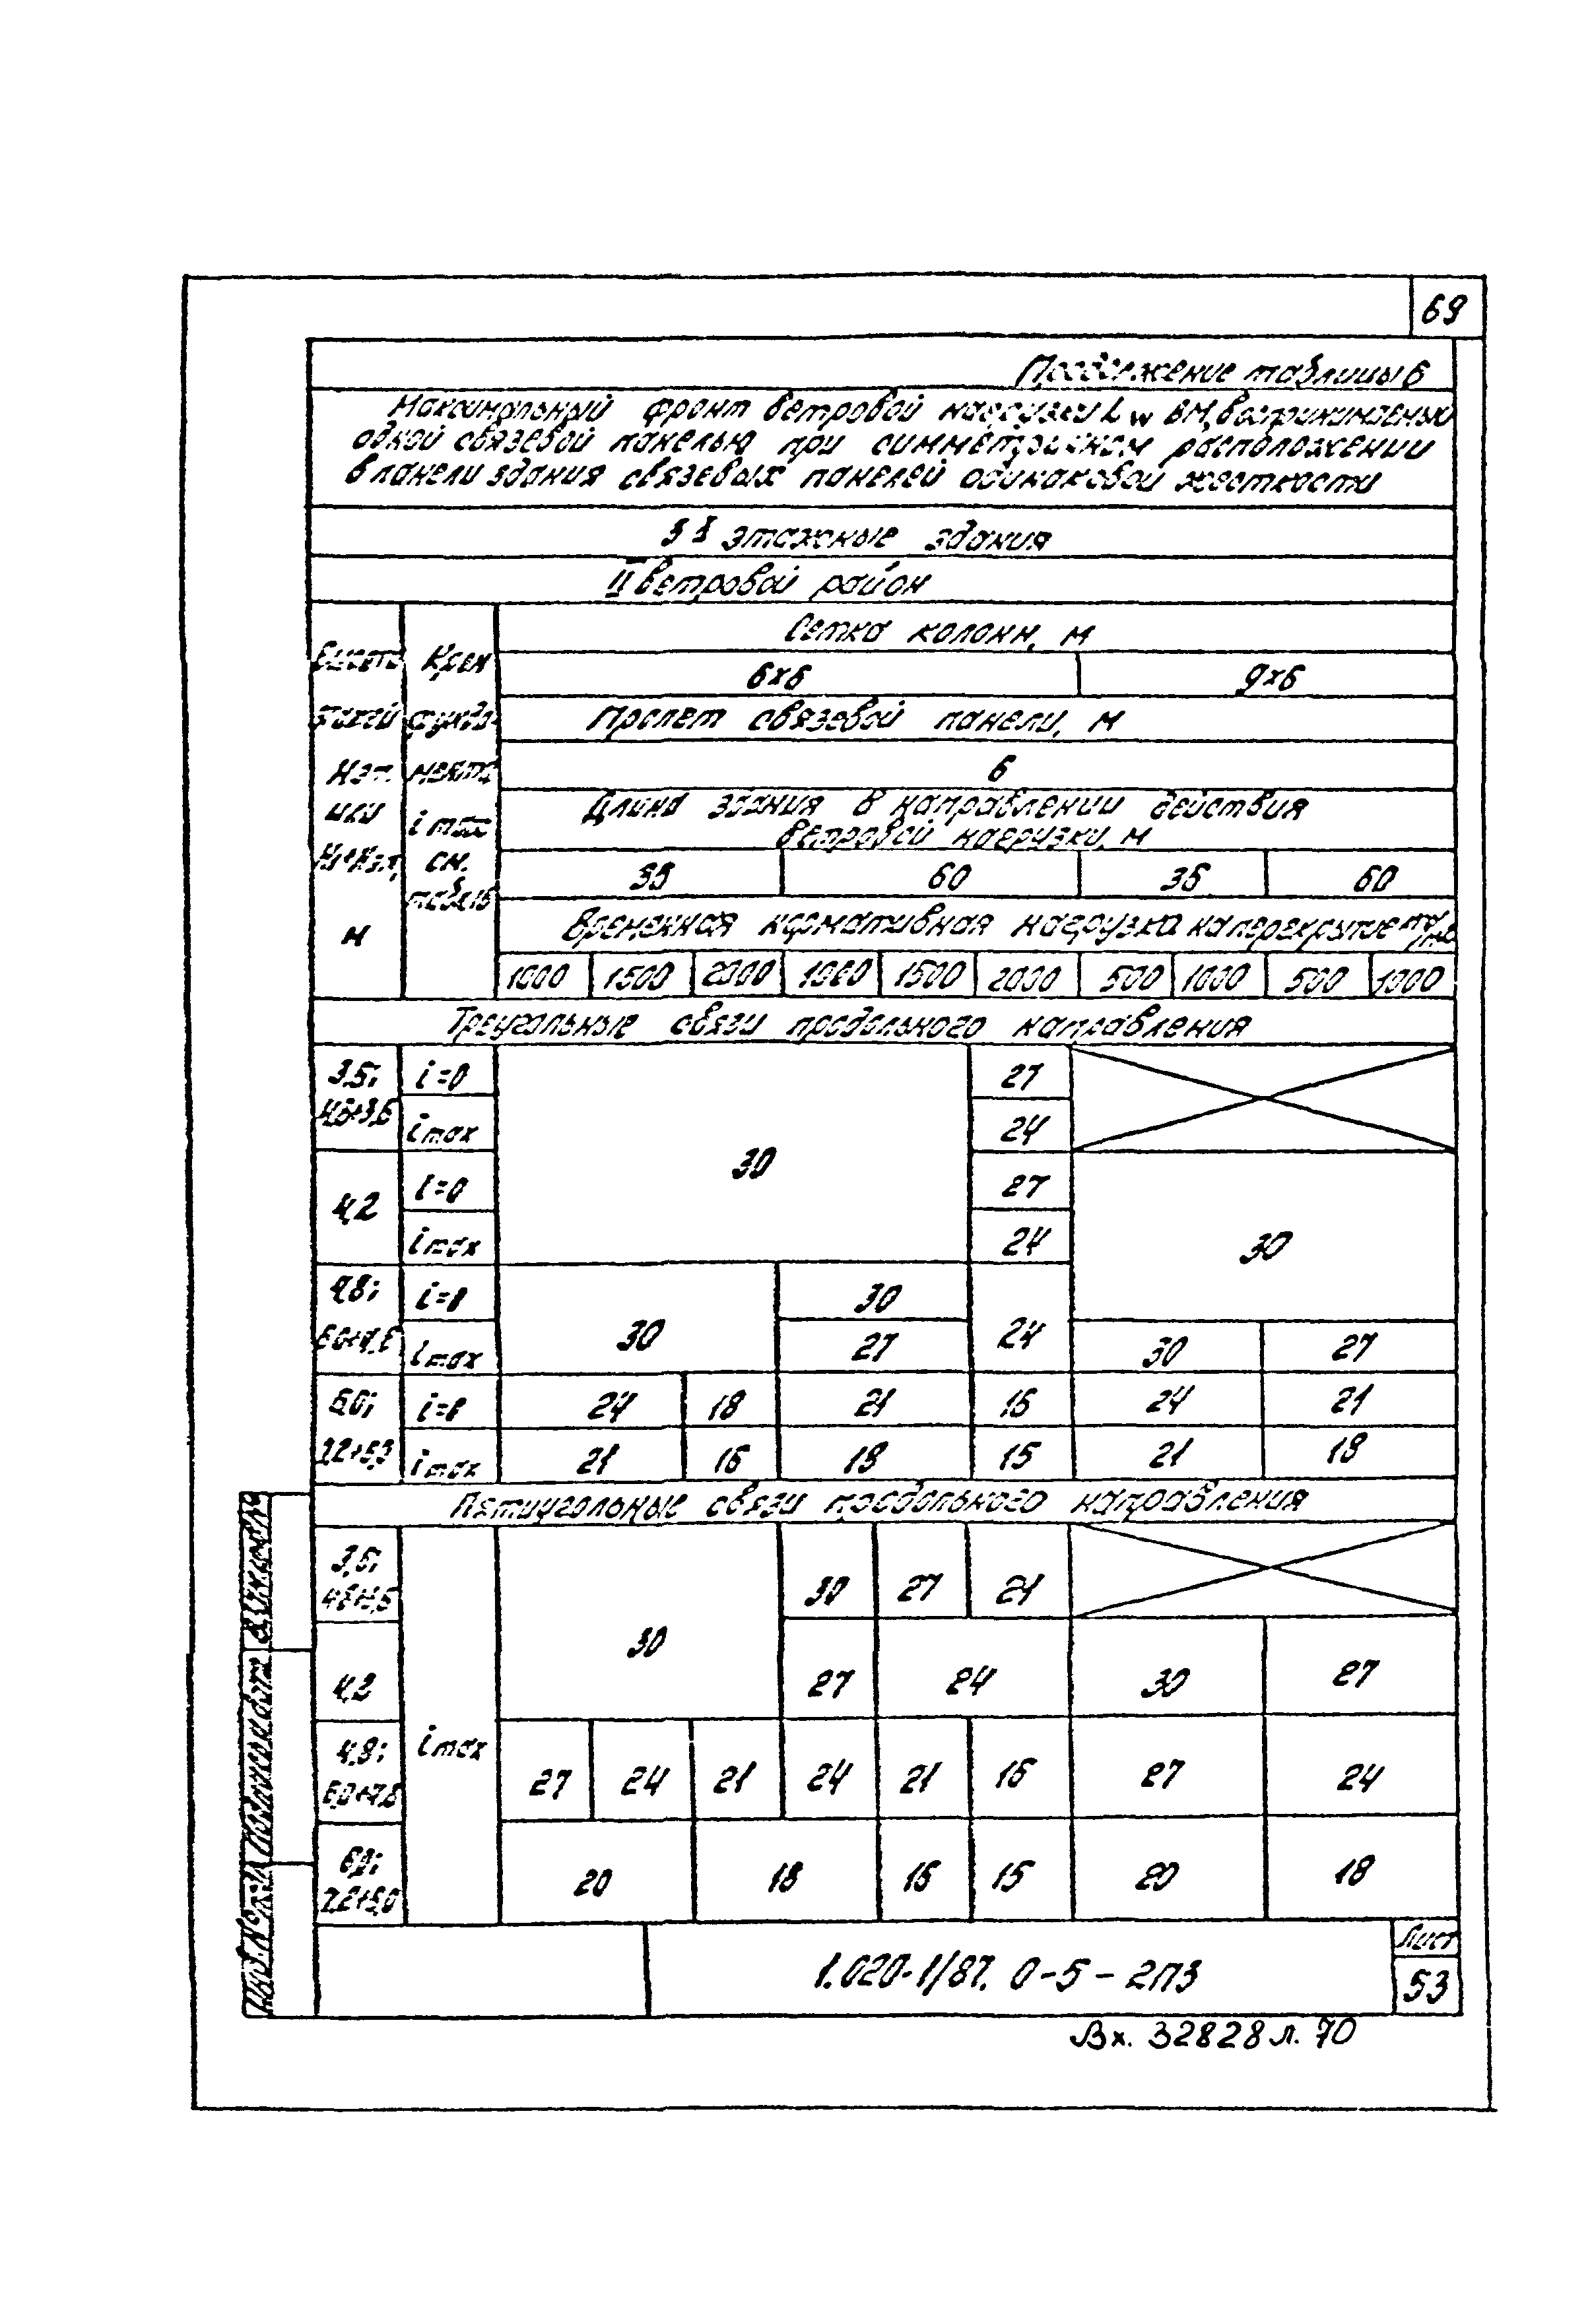 69
Продолжение таблицы 6
Максимальный фронт ветровой нагрузки L w в м, воспринимаемый
одной связевой панелью при симметричном расположении
в панели здания связевых панелей одинаковой жесткости
этажные здания
II ветровой район
Высота этажей Нэт. или м
Крен фундамента i max см. табл.
Сетка колонн, м
6х6 9х6
Пролет связевой панели, м
6
Длина здания в направлении действия
ветровой нагрузки, м
36 60 36 60
Временная нормативная нагрузка на перекрытие
1000 1500 2000 1000 1500 2000 500 1000 500 1000
Треугольные связи продольного направления
3,6; i=0 27
4,8+3,6 i max 24
30
4,2 i=0 27
i max 24 30
4,8; i=0 30
6,0+4,8 i max 30 27 24 30 27
6,0; i=0 24 18 21 16 24 21
7,2+6,0 i max 21 16 18 15 21 18
Пятиугольные связи продольного направления
3,6;
4,8+3,6 30 27 21
30
4,2 27 24 30 27
i max
4,8;
6,0+4,8 27 24 21 24 21 16 27 24
6,0;
7,2+6,0 20 18 16 15 20 18
Инв. № подл. Подпись и дата Взам. инв. №
1.020-1/87. 0-5-2ПЗ
Лист
53
Вх. 32828 л. 70